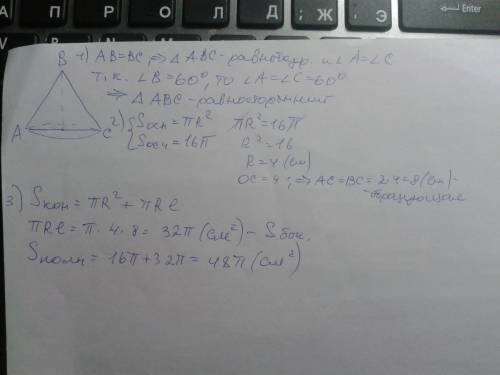 П А Р О Л Д Ж Э Enter
B
1) AB=BC, ⇒ △ABC - равнобедр. и ∠A=∠C
т.к. ∠B=60°, то ∠A=∠C=60°
⇒ △ABC - равносторонний
A C
2) { Sосн = πR² πR²=16π
Sосн = 16π R²=16
R=4 (см)
OC=4; ⇒ AC=BC=2·4=8 (см) -
образующая
3) Sкон = πR² + πRl
πRl = π · 4 · 8 = 32π (см²) - Sбок.
Sполн = 16π+32π = 48π (см²)